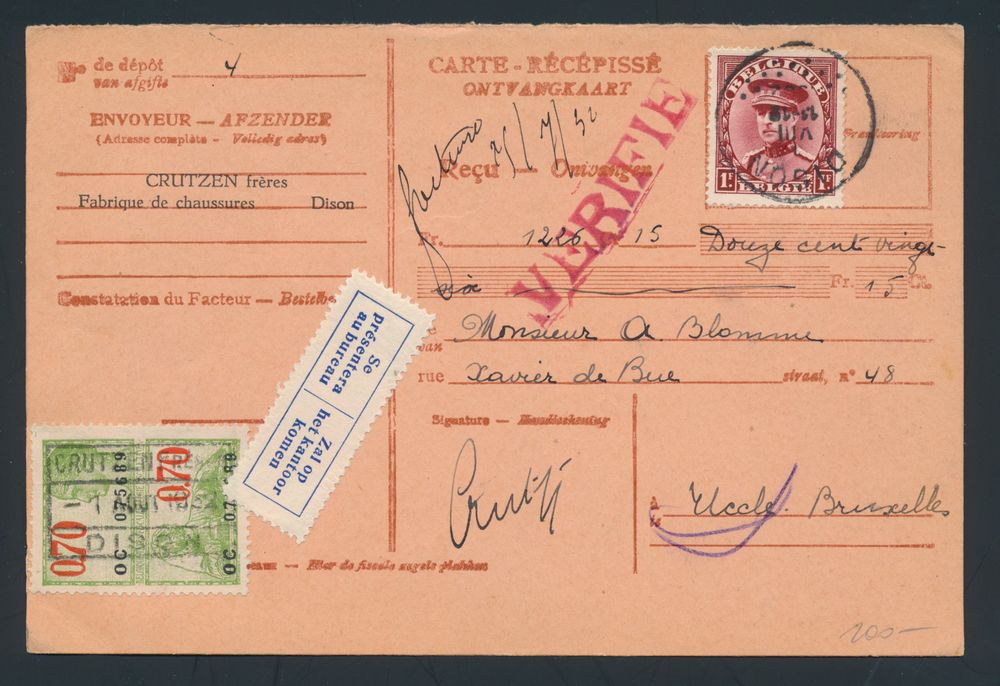 Nº de dépôt 4
van afgifte
ENVOYEUR — AFZENDER
(Adresse complète - Volledig adres)
CRUTZEN frères
Fabrique de chaussures Dison
Constatation du Facteur — Bestelle
CARTE-RÉCÉPISSÉ
ONTVANGKAART
facture 25/7/32
Reçu — Ontvangen
VERIFIE
BELGIQUE
1F 1F
BELGIË
VIII
DISON
NORD
Frankeering
Fr. 1226 15 Douze cent vingt-
six Fr. 15 Ct.
de
van Monsieur A Blomme
rue Xavier de Bue straat, nº 48
Signature — Handteekening
Crutz
à
te Uccle. Bruxelles
Se
présentera
au bureau
Zal op
het kantoor
komen
CRUTZEN FRE
- 1 AOUT 1932
DISON
0.70 0.70
OC 075689
OC 07 89
eaux — Hier de fiscale zegels plakken
200-